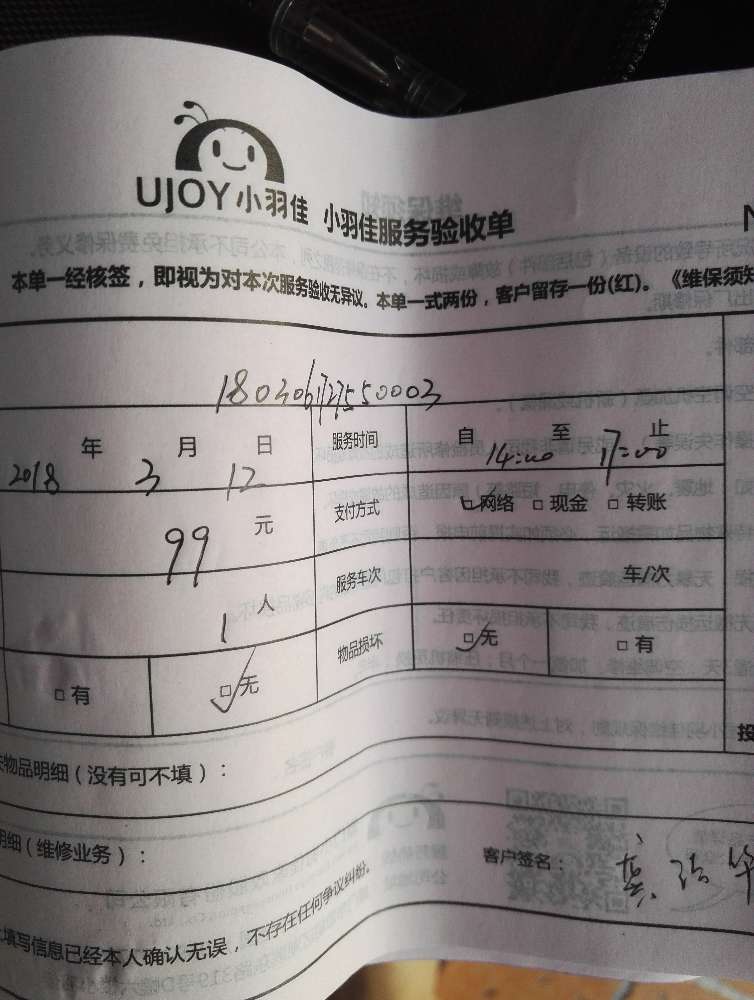 UJOY小羽佳 小羽佳服务验收单
本单一经核签，即视为对本次服务验收无异议。本单一式两份，客户留存一份(红)。《维保须知
2018 年 3 月 12 日 服务时间 自 14:00 至 17:00 止
99 元 支付方式 ☑网络 □现金 □转账
1 人 服务车次 车/次
□有 ☑无 物品损坏 ☑无 □有
物品明细（没有可不填）：
明细（维修业务）：
客户签名：
填写信息已经本人确认无误，不存在任何争议纠纷。